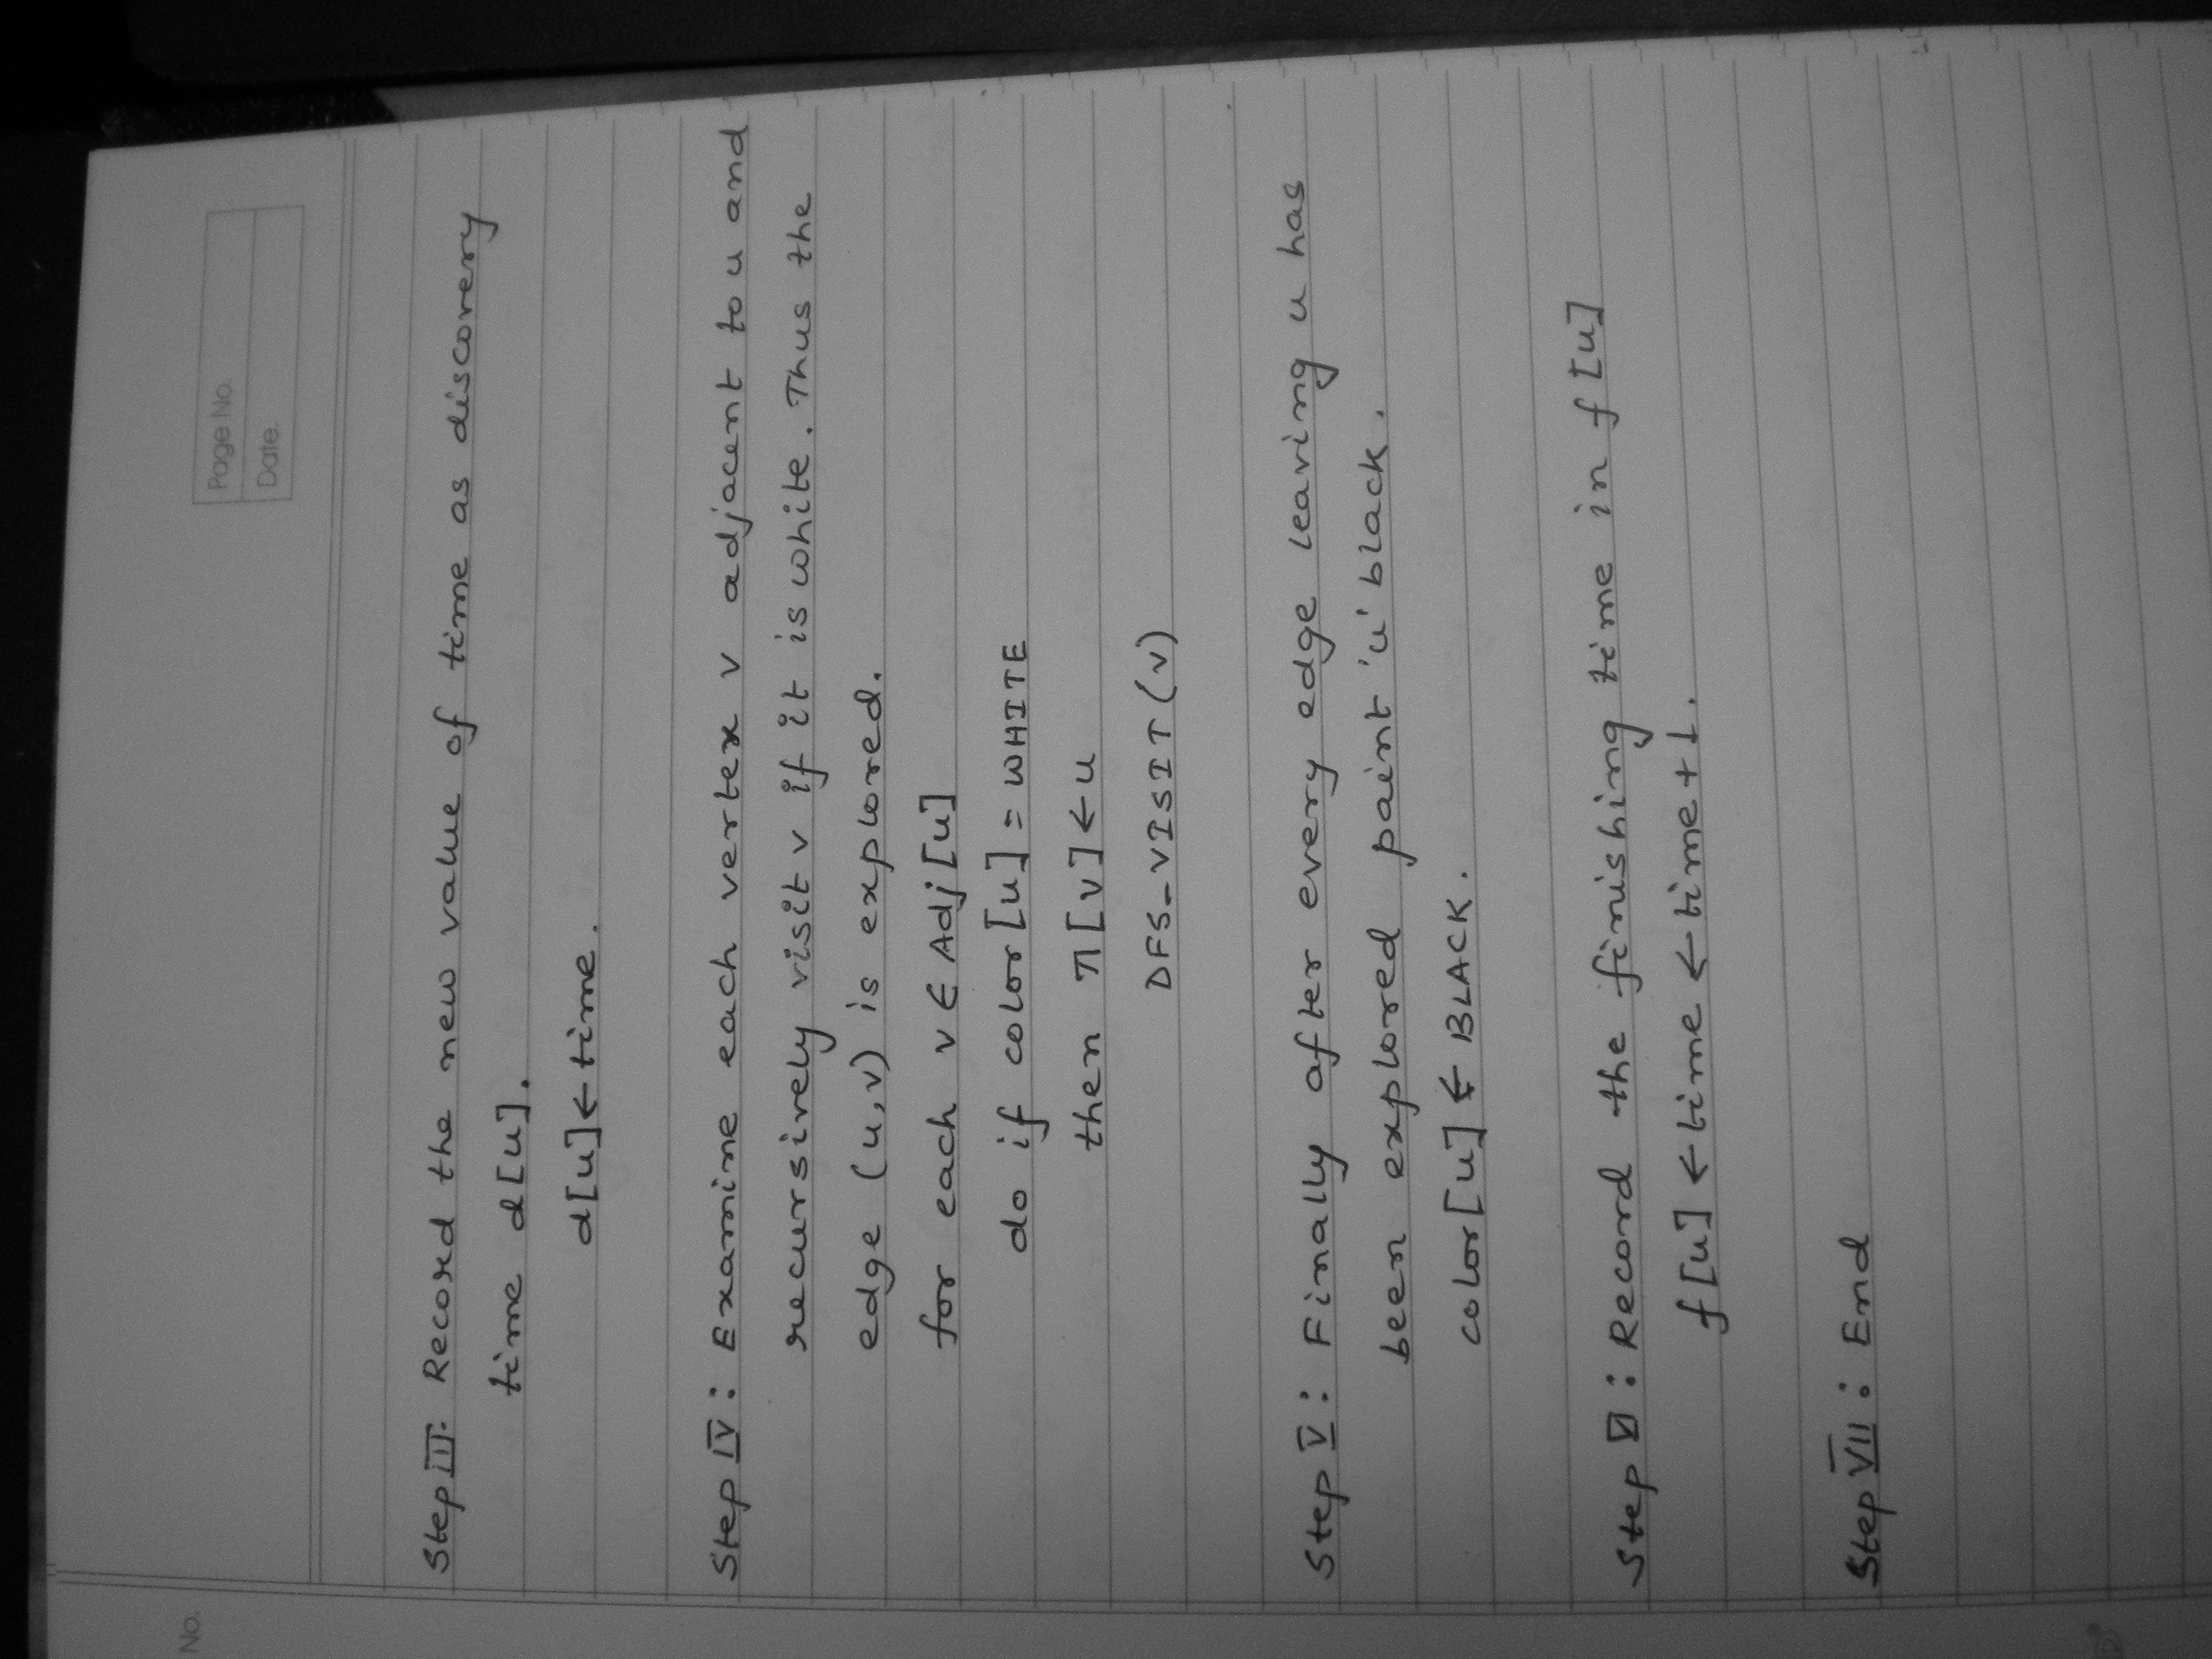 Page No.
Date.
No.
Step III: Record the new value of time as discovery
time d[u].
d[u]←time.
Step IV: Examine each vertex v adjacent to u and
recursively visit v if it is white. Thus the
edge (u,v) is explored.
for each v ∈ Adj[u]
do if color[u] = WHITE
then π[v]←u
DFS_VISIT(v)
Step V: Finally after every edge leaving u has
been explored paint 'u' black.
color[u] ← BLACK.
Step V: Record the finishing time in f[u]
f[u] ← time ← time+1.
Step VII: End